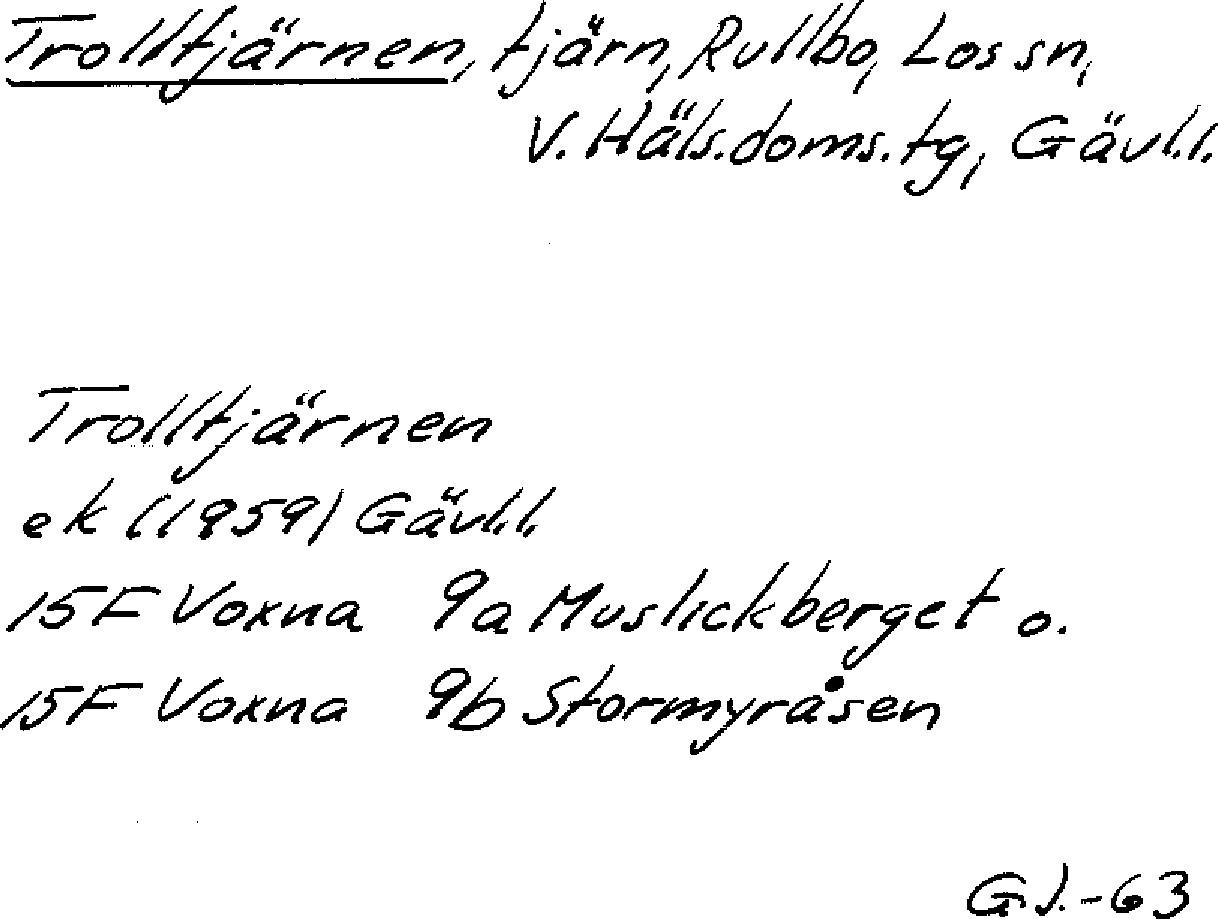 Trolltjärnen, tjärn, Rullbo, Los sn,
V. Häls. doms. tg, Gävl.l.
Trolltjärnen
ek (1959) Gävl.l.
15F Voxna 9a Muslickberget o.
15F Voxna 9b Stormyråsen
GJ.-63